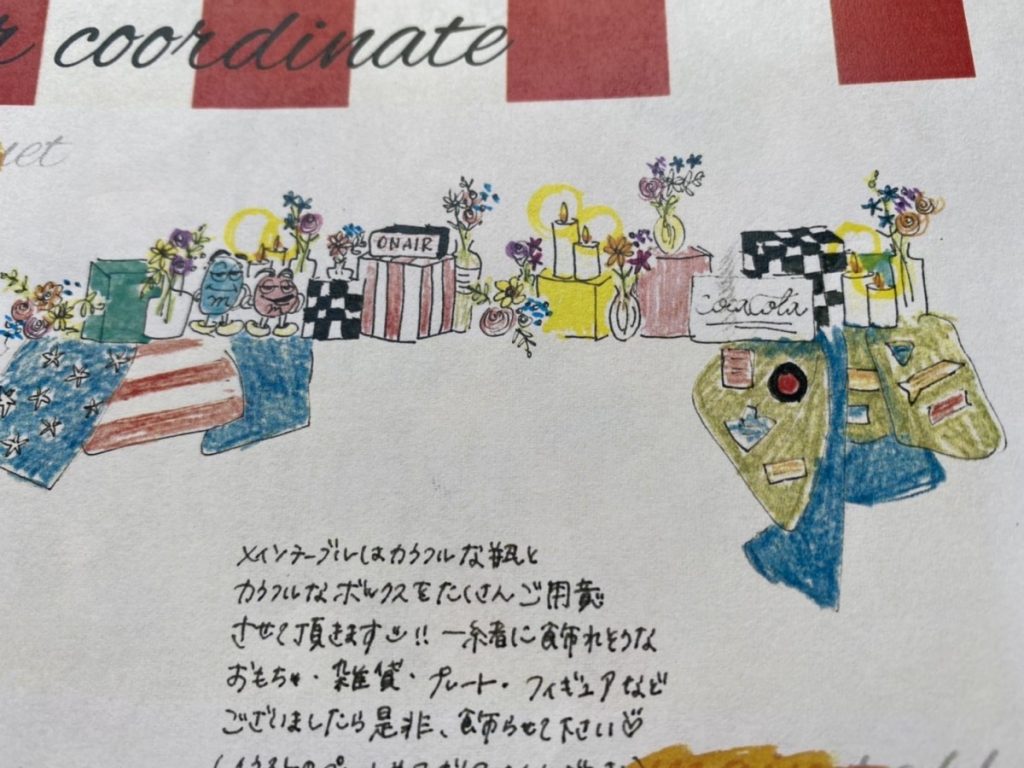 coordinate
uet
ON AIR
m
m
CocaCola
メインテーブルはカラフルな瓶と
カラフルなボックスをたくさんご用意
させて頂きます!! 一緒に飾れそうな
おもちゃ・雑貨・プレート・フィギュアなど
ございましたら是非、飾らせて下さい♡